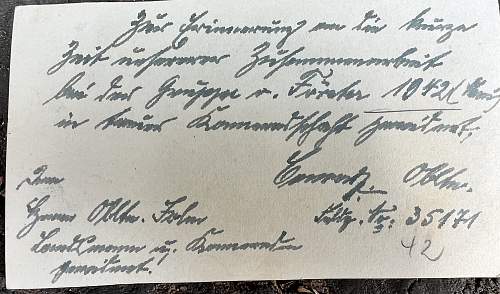 Zur Erinnerung an die kurze
Zeit unserer Zusammenarbeit
bei der Gruppe v. Förster 1942
in treuer Kameradschaft gewidmet,
Conrad, Obltn.
Dem
Herrn Obltn.
Feldp. Nr: 35171
Landsmann u. Kameraden
42
gewidmet.